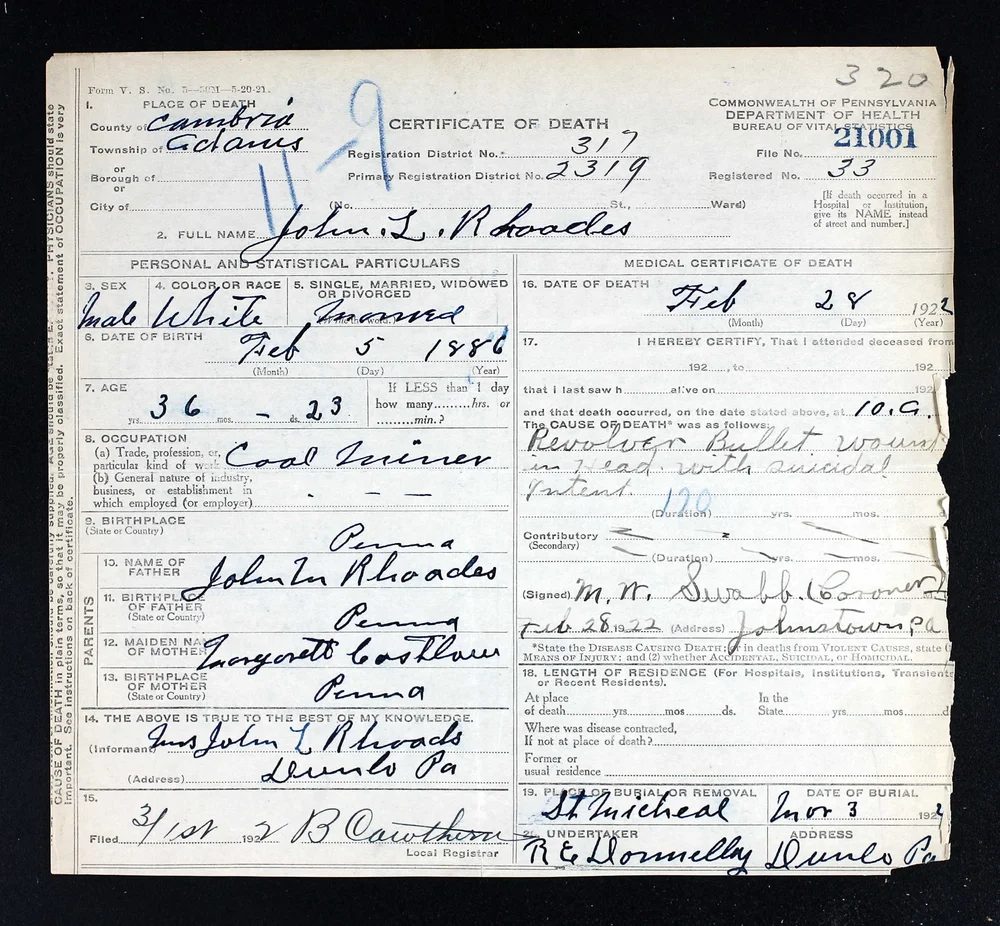 320
Form V. S. No. 5—50M—5-20-21.
COMMONWEALTH OF PENNSYLVANIA
DEPARTMENT OF HEALTH
BUREAU OF VITAL STATISTICS
1. PLACE OF DEATH
County of Cambria
Township of Adams
or
Borough of
or
City of
11-9
CERTIFICATE OF DEATH
Registration District No. 317
Primary Registration District No. 2319
(No. St., Ward)
File No. 21001
Registered No. 33
[If death occurred in a
Hospital or Institution,
give its NAME instead
of street and number.]
2. FULL NAME John. L. Rhoades
PERSONAL AND STATISTICAL PARTICULARS
3. SEX
Male
4. COLOR OR RACE
White
5. SINGLE, MARRIED, WIDOWED
OR DIVORCED
Married
6. DATE OF BIRTH
Feb 5 1886
(Month) (Day) (Year)
7. AGE
36 yrs. - mos. 23 ds.
If LESS than 1 day
how many hrs. or
min.?
8. OCCUPATION
(a) Trade, profession, or
particular kind of work Coal Miner
(b) General nature of industry,
business, or establishment in
which employed (or employer)
9. BIRTHPLACE
(State or Country)
Penna
PARENTS
10. NAME OF
FATHER John M Rhoades
11. BIRTHPLACE
OF FATHER
(State or Country) Penna
12. MAIDEN NAME
OF MOTHER Margarett Costlow
13. BIRTHPLACE
OF MOTHER
(State or Country) Penna
14. THE ABOVE IS TRUE TO THE BEST OF MY KNOWLEDGE.
(Informant) Mrs John L Rhoads
(Address) Dunlo Pa
15.
Filed 3/1st 1922 B Cawthern
Local Registrar
MEDICAL CERTIFICATE OF DEATH
16. DATE OF DEATH
Feb 28 1922
(Month) (Day) (Year)
17. I HEREBY CERTIFY, That I attended deceased from
192 , to 192
that I last saw h alive on 192
and that death occurred, on the date stated above, at 10.a.
The CAUSE OF DEATH* was as follows:
Revolver Bullet wound
in Head with suicidal
Intent.
170
(Duration) yrs. mos.
Contributory
(Secondary)
(Duration) yrs. mos.
(Signed) M. W. Swabb. (Coroner)
Feb 28 1922 (Address) Johnstown, Pa
*State the DISEASE CAUSING DEATH; or in deaths from VIOLENT CAUSES, state (
MEANS OF INJURY; and (2) whether ACCIDENTAL, SUICIDAL, or HOMICIDAL.
18. LENGTH OF RESIDENCE (For Hospitals, Institutions, Transients
or Recent Residents).
At place In the
of death yrs. mos ds. State yrs. mos d
Where was disease contracted,
If not at place of death?
Former or
usual residence
19. PLACE OF BURIAL OR REMOVAL
St Micheal
DATE OF BURIAL
Mar 3 192
UNDERTAKER
R E Donnelly
ADDRESS
Dunlo Pa
CAUSE OF DEATH in plain terms, so that it may be properly classified. Exact statement of OCCUPATION is very
important. See instructions on back of certificate.
PHYSICIANS should state